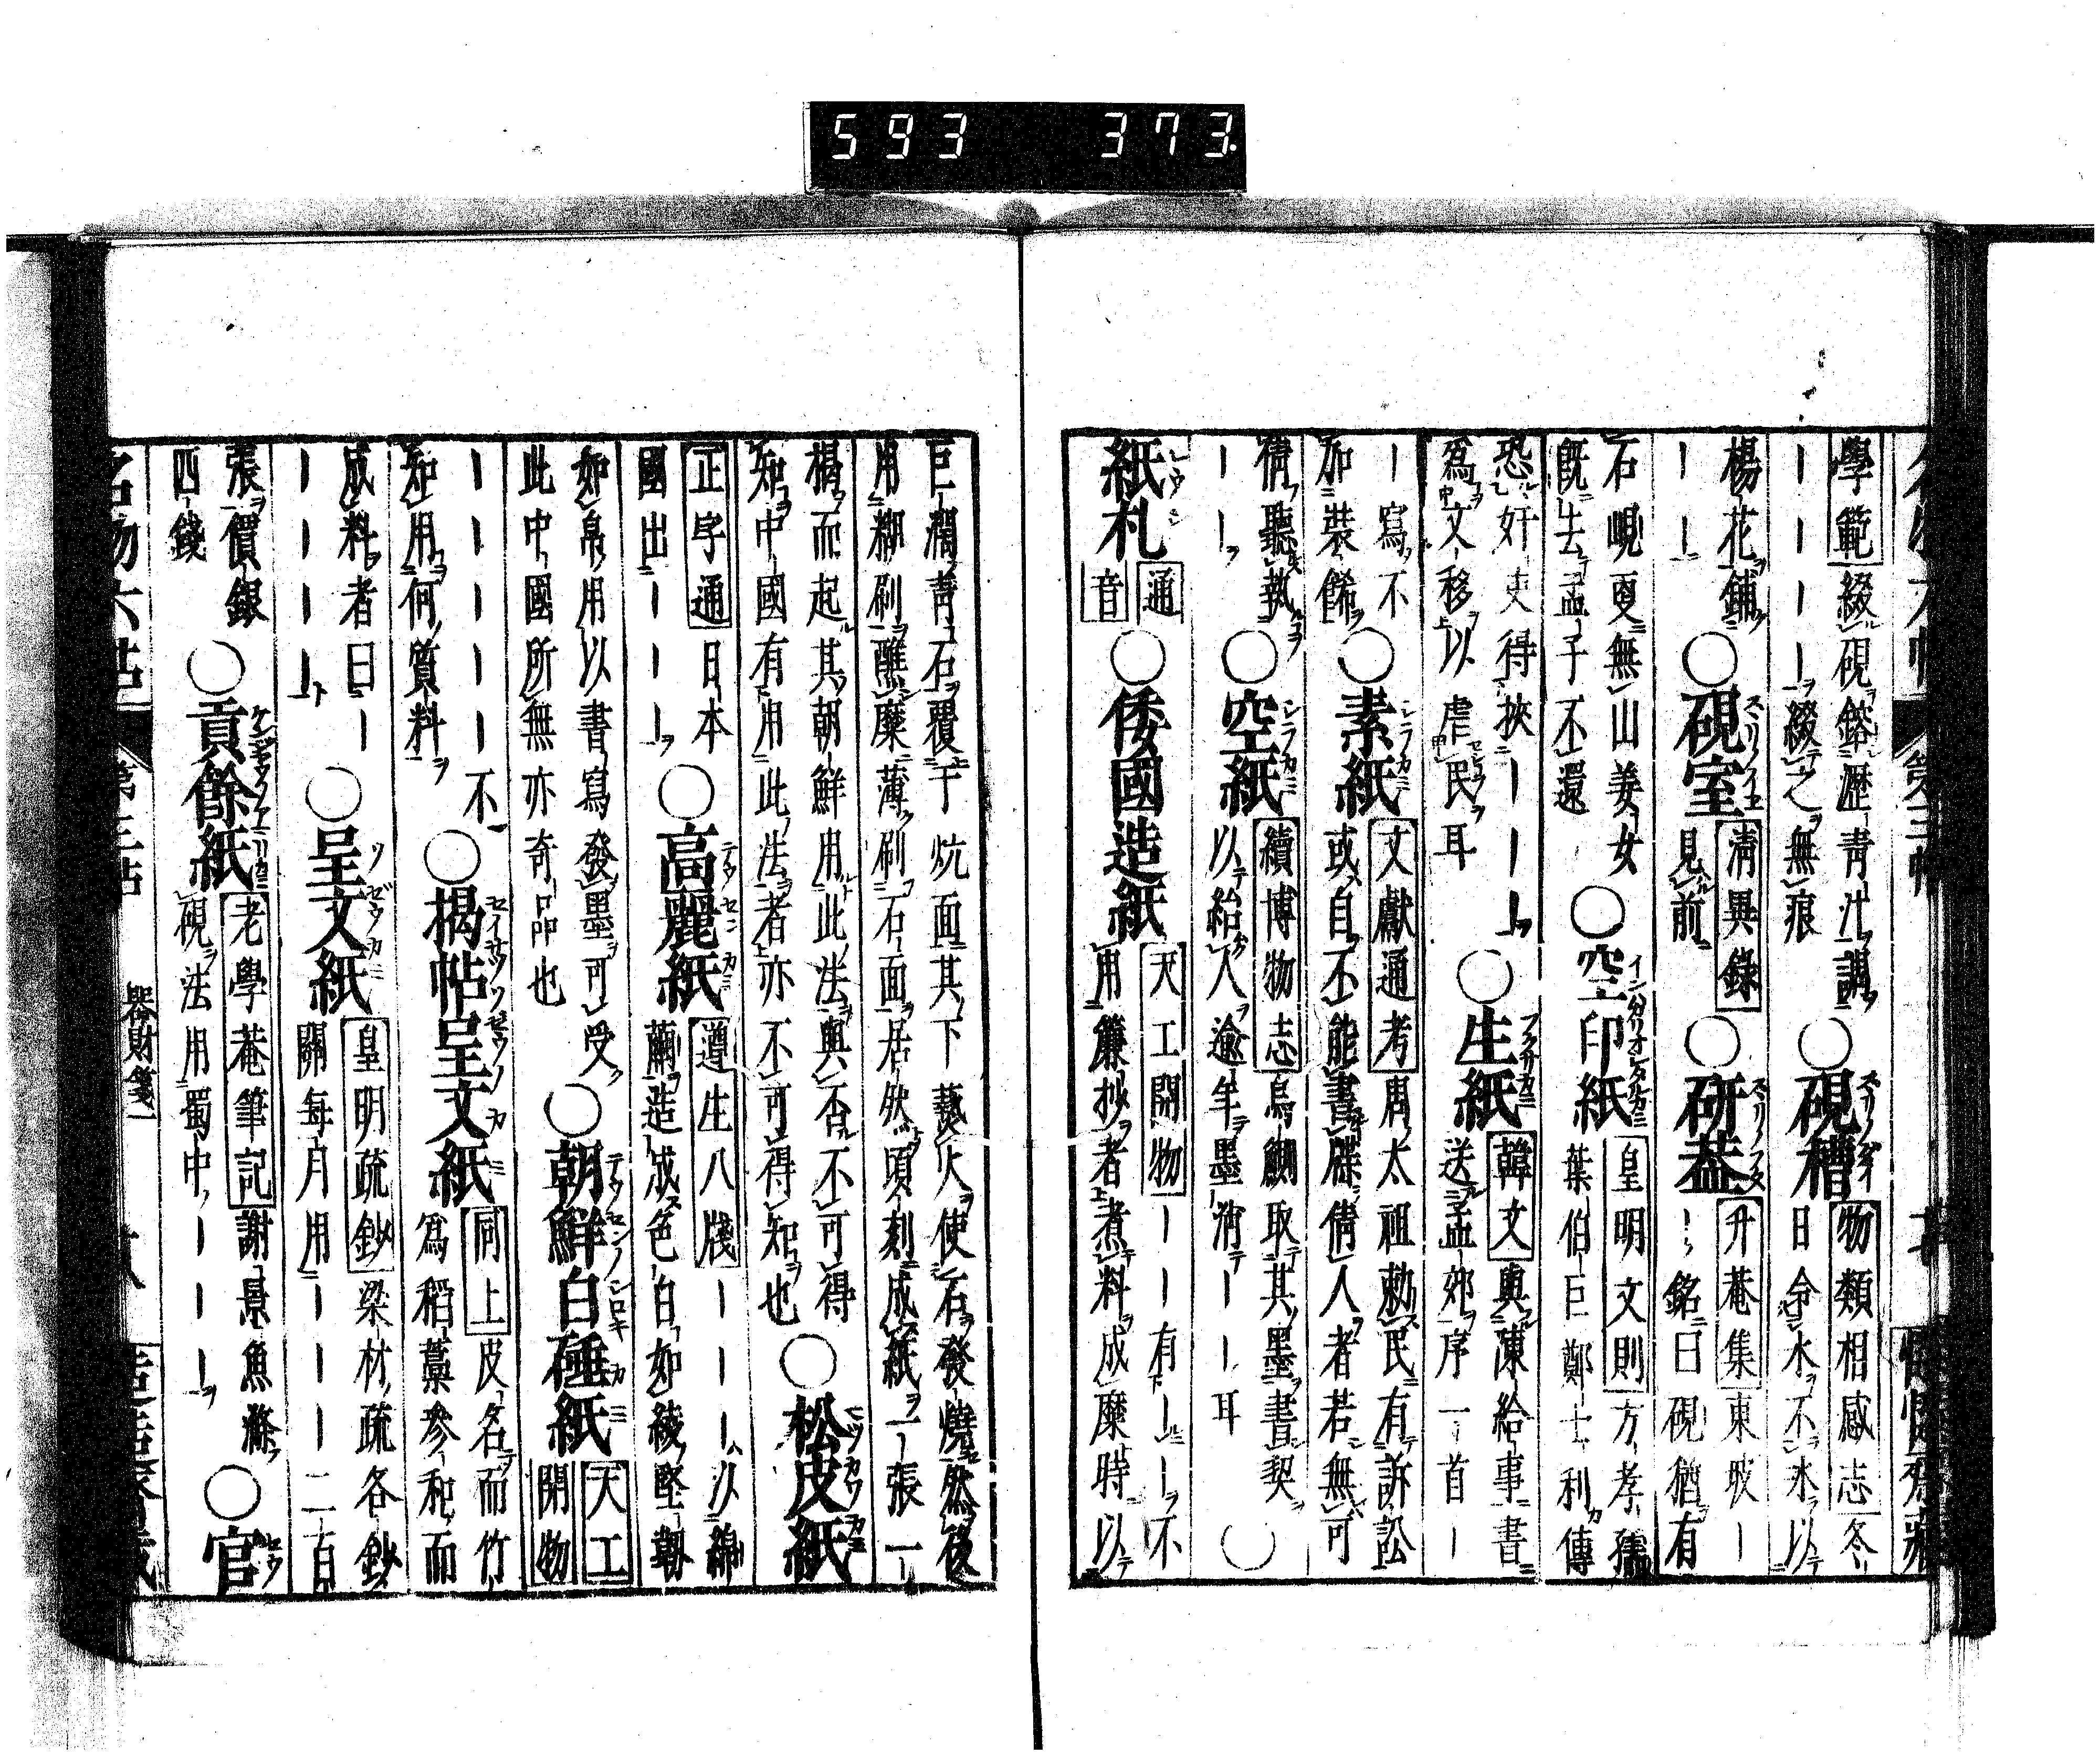 學範綴硯鎔瀝青汁調
一一一一綴之無痕
○硯槽
物類相感志冬
日令水不氷以
楊花鋪
一一
○硯室
清異錄
見前
○研葢
升菴集東坡一
一銘曰硯猶有
石峴叓無山姜女
既去孟子不還
○空印紙
皇明文則方孝孺
葉伯巨鄭士利傳
恐奸吏得挾一一一
爲文移以虐民耳
○生紙
韓文與陳給事書
送孟郊序一首一
一寫不
加裝餙
○素紙
文獻通考周太祖勅民有訴訟
或自不能書牒倩人者若無可
倩聽執
一一
○空紙
續博物志烏鰂取其墨書契
以給人逾年墨消一一耳
○
紙札
通
音
○倭國造紙
天工開物一一有一一不
用簾抄者煮料成糜時以
巨濶青石覆于炕面其下爇火使石發燒然後
用糊刷蘸糜薄刷石面居然頃刻成紙一張一
揭而起其朝鮮用此法與否不可得
知中國有用此法者亦不可得知也
○松皮紙
正字通日本
國出一一一
○高麗紙
遵生八牋一一一以綿
繭造成色白如綾堅韌
如帛用以書寫發墨可受
此中國所無亦奇品也
○朝鮮白硾紙
天工
開物
一一一一一不
知用何質料
○揭帖呈文紙
同上皮名而竹
爲稻藁参和而
成料者曰一
一一一一
○呈文紙
皇明疏鈔梁材疏各鈔
關每月用一一一二百
張價銀
四錢
○貢餘紙
老學菴筆記謝景魚滌
硯法用蜀中一一一
○官
名物六帖 第三帖 器財箋一
593 373.